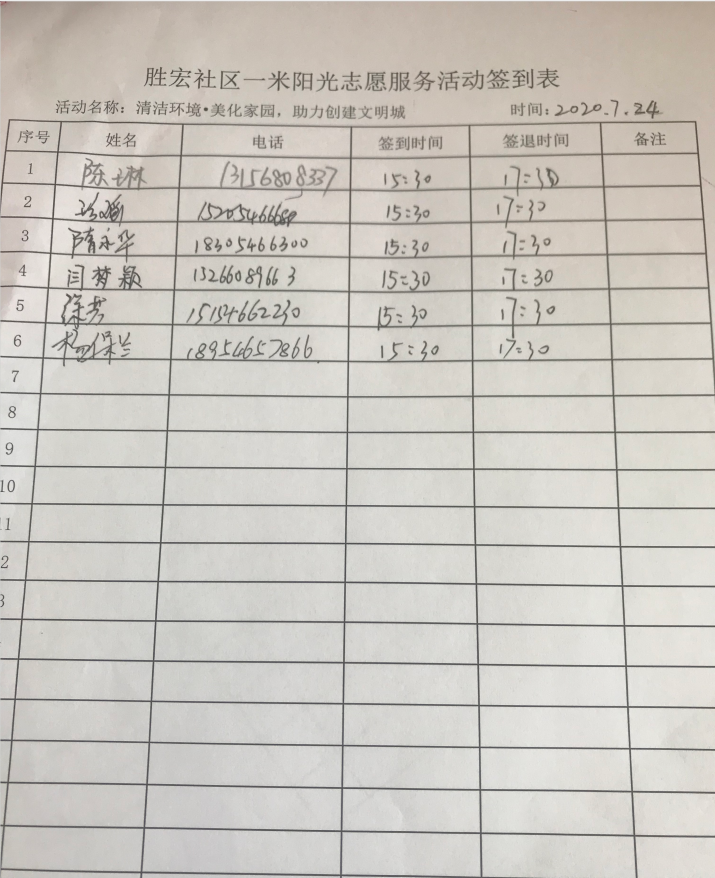 胜宏社区一米阳光志愿服务活动签到表
活动名称：清洁环境•美化家园，助力创建文明城 时间：2020.7.24
序号 姓名 电话 签到时间 签退时间 备注
1 陈 琳 13156808337 15:30 17:30
2 15:30 17:30
3 隋永华 18305466300 15:30 17:30
4 闫梦颖 15266089663 15:30 17:30
5 徐芳 15154662230 15:30 17:30
6 杨保兰 18954657866 15:30 17:30
7
8
9
10
11
2
3